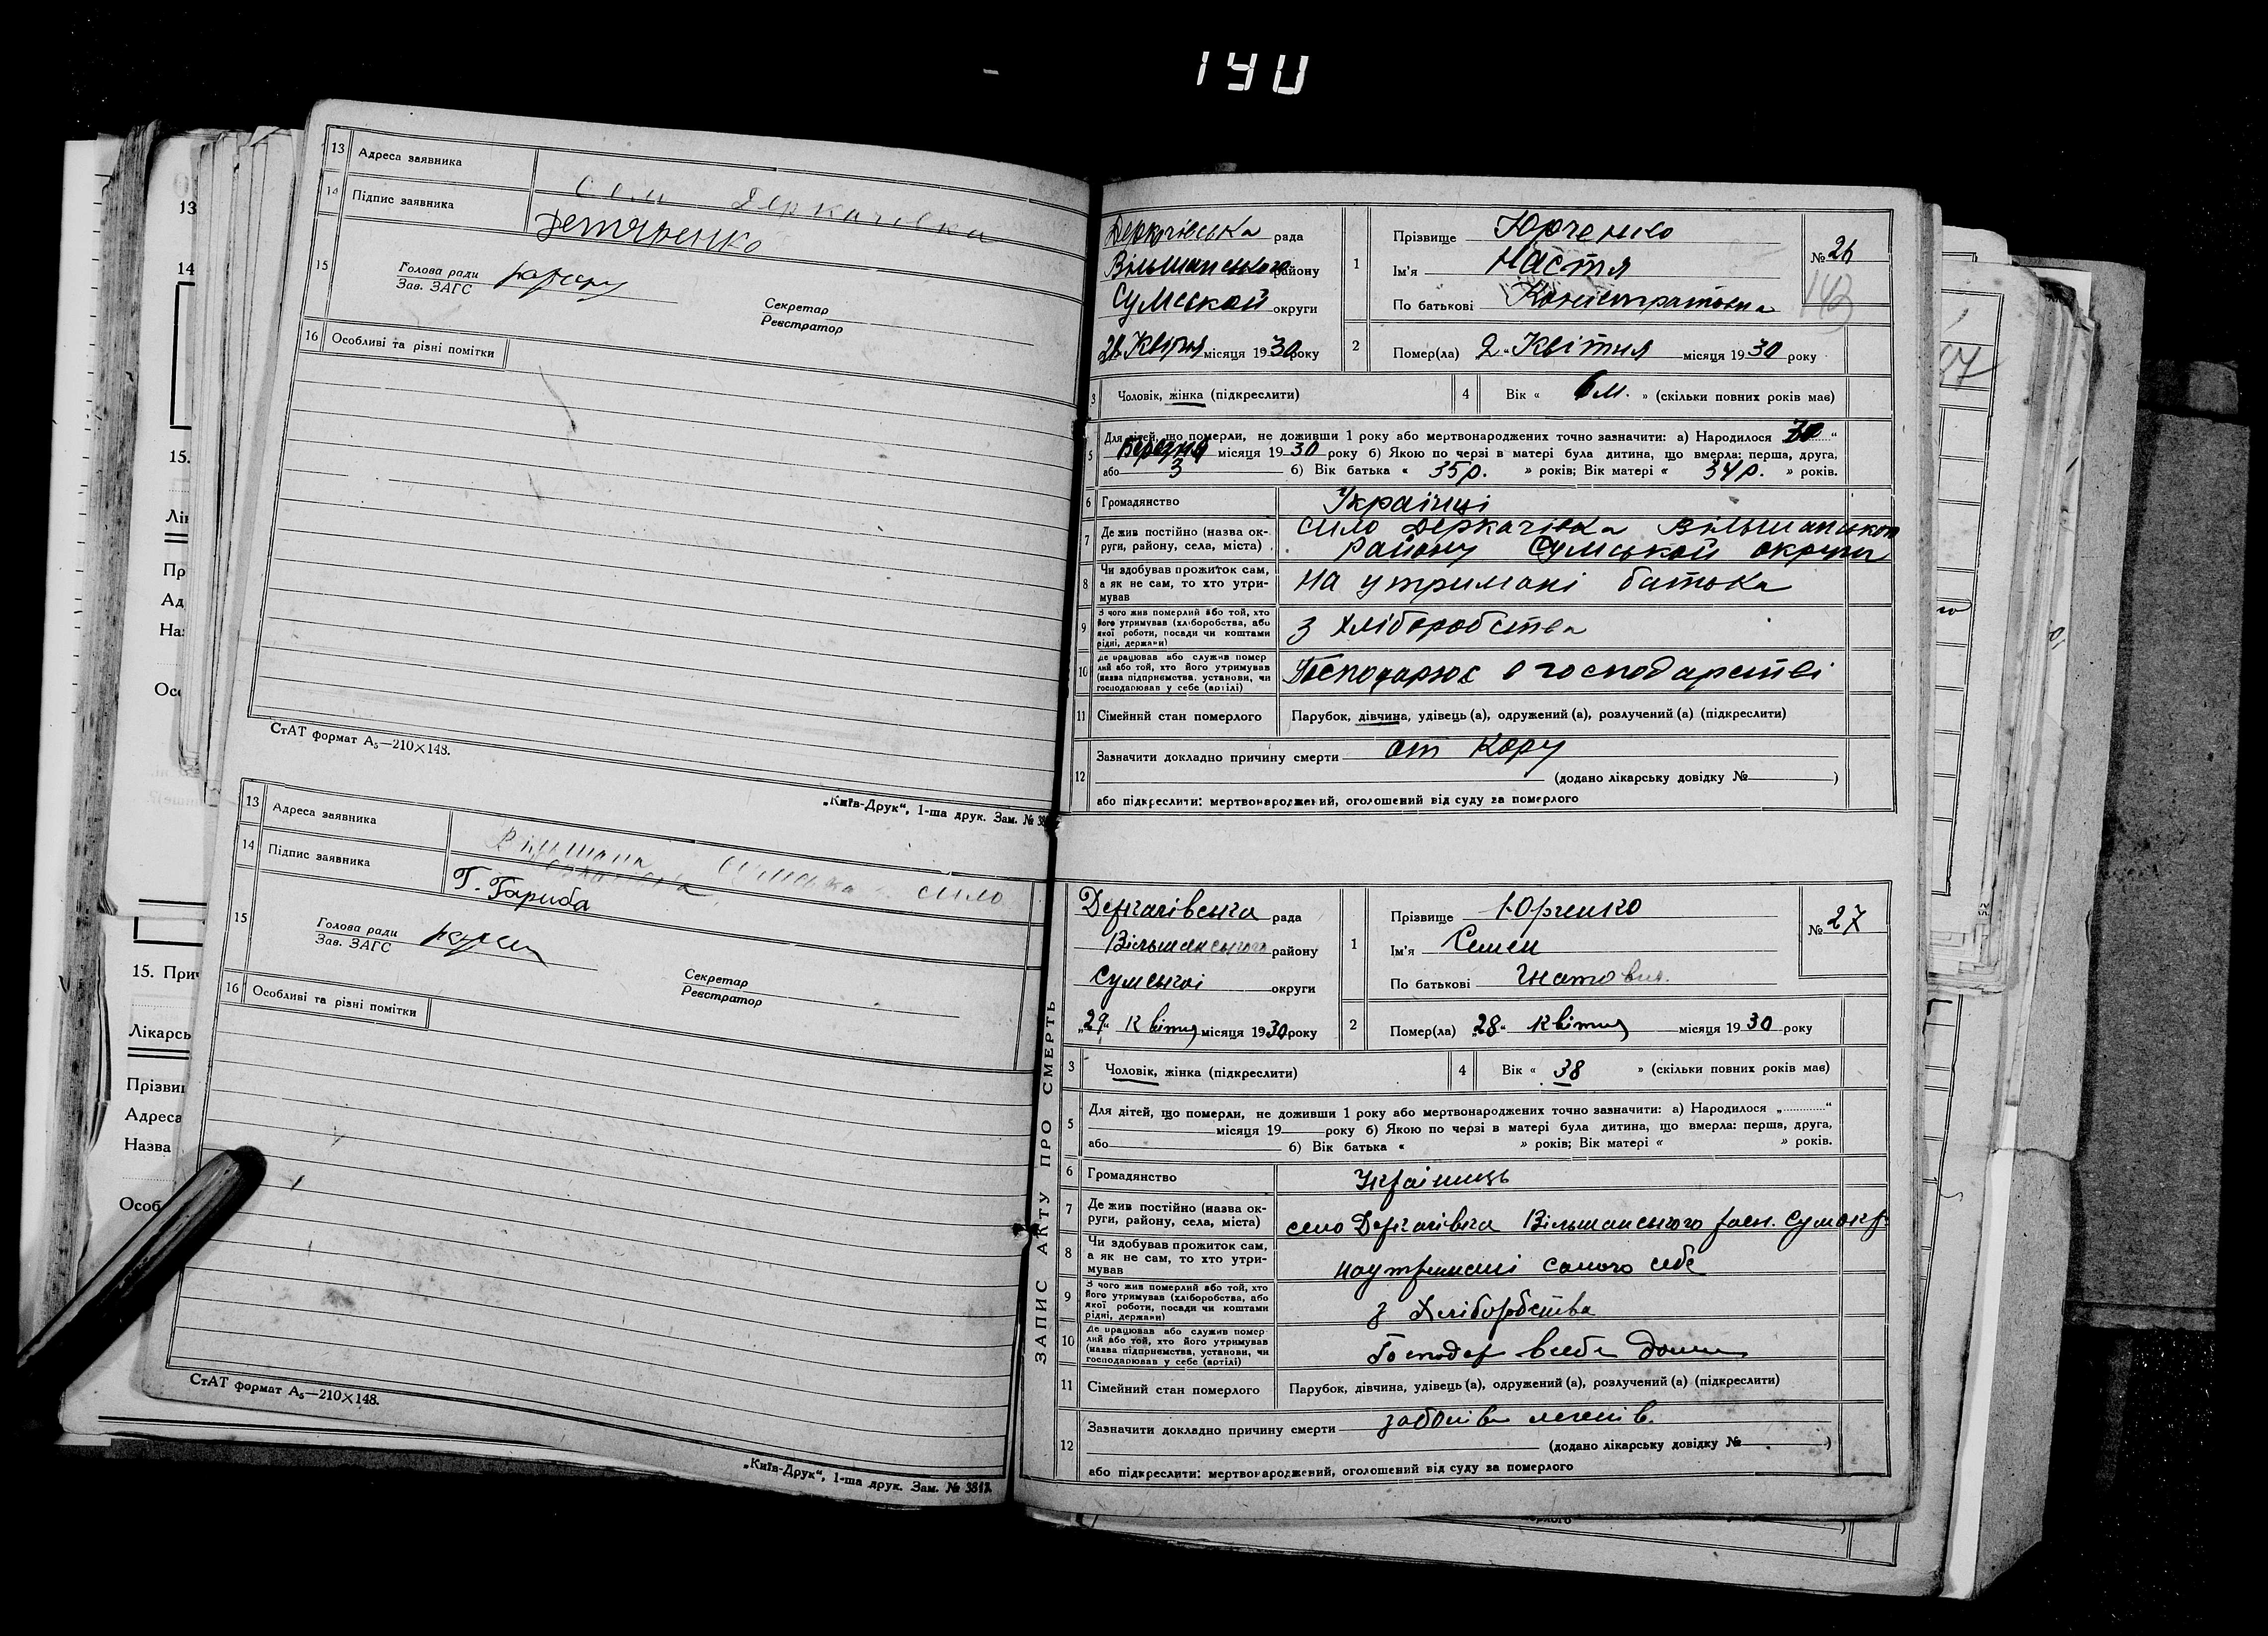 13 Адреса заявника
Село Деркачовка
14 Підпис заявника
Дегтяренко
15 Голова ради
Зав. ЗАГС
Секретар
Реєстратор
16 Особливі та різні помітки
СтАТ формат А₅—210×148.
„Київ-Друк“, 1-ша друк. Зам. № 38
13 Адреса заявника
Вільшана Сумська село
14 Підпис заявника
Г. Гариба
15 Голова ради
Зав. ЗАГС
Секретар
Реєстратор
16 Особливі та різні помітки
СтАТ формат А₅—210×148.
„Київ-Друк“, 1-ша друк. Зам. № 3817.
13
14
15.
15. Прич
Лікарсь
Прізвищ
Адреса
Назва
Особ
Деркачівська рада
Вільшанського району
Сумской округи
28 Квітня місяця 1930 року
1 Прізвище Юрченко
Ім'я Настя
По батькові Каністратовна
№ 26
143
2 Помер(ла) 2 „ Квітня місяця 1930 року
3 Чоловік, жінка (підкреслити)
4 Вік « 6 м. » (скільки повних років має)
5 Для дітей, що померли, не доживши 1 року або мертвонароджених точно зазначити: а) Народилося 30 “
Березня місяця 1930 року б) Якою по черзі в матері була дитина, що вмерла: перша, друга,
або 3 б) Вік батька « 35 р. » років; Вік матері « 34 р. » років.
6 Громадянство Українці
7 Де жив постійно (назва округи, району, села, міста) село Деркачівка Вільшанського
району Сумської округи
8 Чи здобував прожиток сам, а як не сам, то хто утримував на утримані батька
9 З чого жив померлий або той, хто його утримував (хліборобства, або якої роботи, посади чи коштами рідні, держави) з хліборобства
10 Де працював або служив померлий або той, хто його утримував (назва підприємства, установи, чи господарював у себе (артілі) Господарює в господарстві
11 Сімейний стан померлого Парубок, дівчина, удівець (а), одружений (а), розлучений (а) (підкреслити)
12 Зазначити докладно причину смерти от кору
(додано лікарську довідку № )
або підкреслити: мертвонароджений, оголошений від суду за померлого
ЗАПИС АКТУ ПРО СМЕРТЬ
Деркачівська рада
Вільшанського району
Сумської округи
„29“ Квітня місяця 1930 року
1 Прізвище Юрченко
Ім'я Семен
По батькові Гнатович
№ 27
2 Помер(ла) „28“ Квітня місяця 1930 року
3 Чоловік, жінка (підкреслити)
4 Вік « 38 » (скільки повних років має)
5 Для дітей, що померли, не доживши 1 року або мертвонароджених точно зазначити: а) Народилося „ “
місяця 19 року б) Якою по черзі в матері була дитина, що вмерла: перша, друга,
або б) Вік батька « » років; Вік матері « » років.
6 Громадянство Українець
7 Де жив постійно (назва округи, району, села, міста) село Деркачівка Вільшанського
8 Чи здобував прожиток сам, а як не сам, то хто утримував на утримані самого себе
9 З чого жив померлий або той, хто його утримував (хліборобства, або якої роботи, посади чи коштами рідні, держави) з Хліборобства
10 Де працював або служив померлий або той, хто його утримував (назва підприємства, установи, чи господарював у себе (артілі) Господар в себе дома
11 Сімейний стан померлого Парубок, дівчина, удівець (а), одружений (а), розлучений (а) (підкреслити)
12 Зазначити докладно причину смерти легенів
(додано лікарську довідку № )
або підкреслити: мертвонароджений, оголошений від суду за померлого